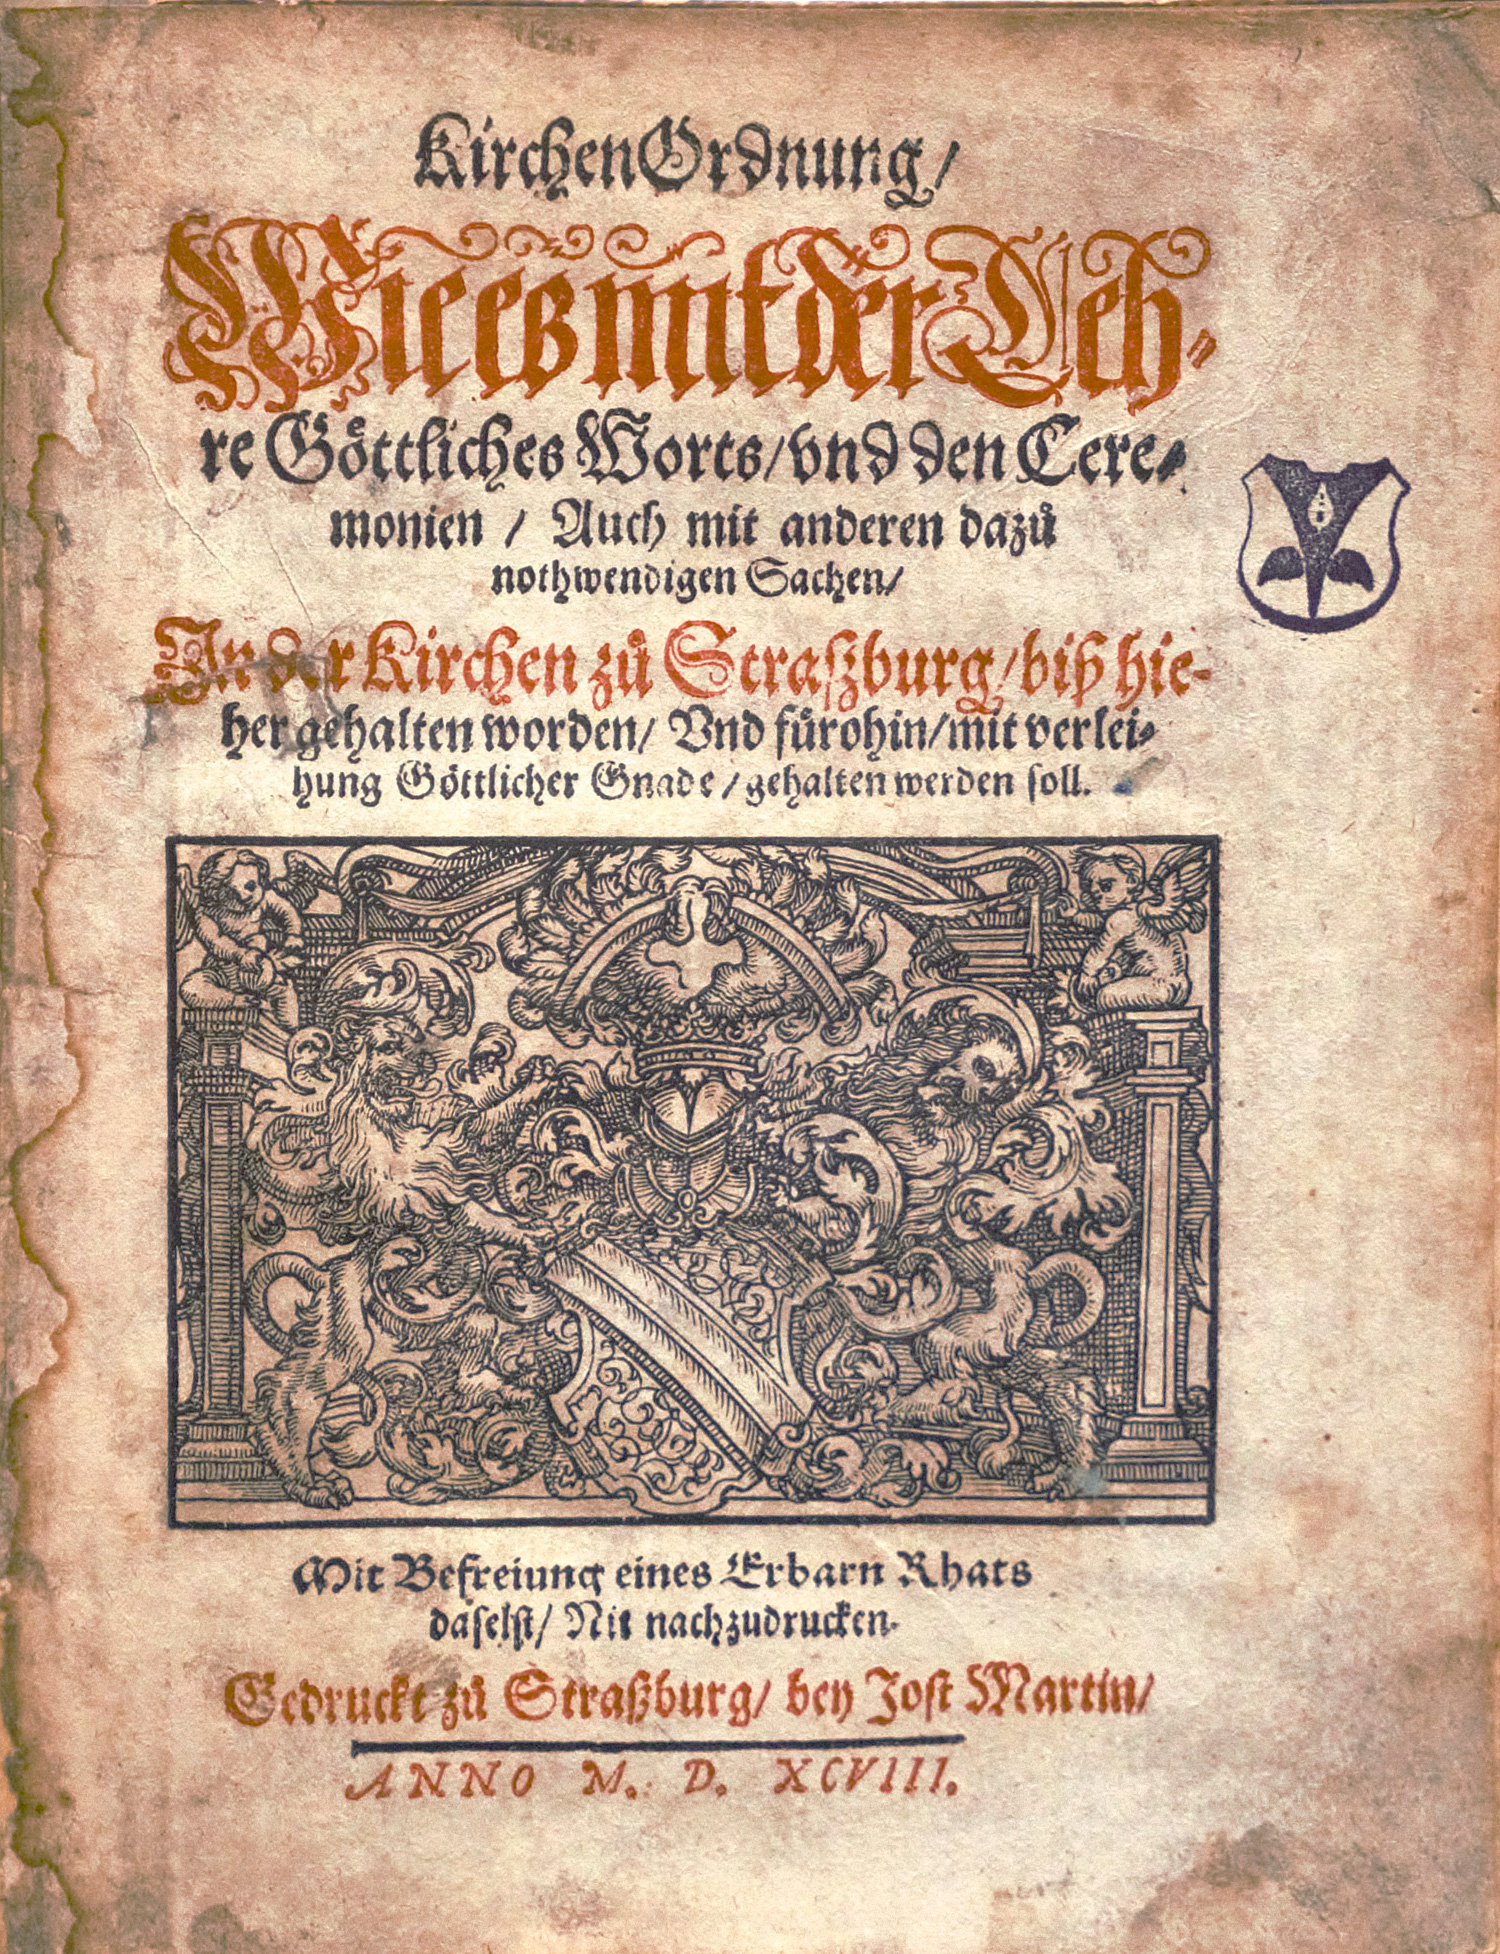 KirchenOrdnung/
Wie es mit der Leh-
re Goͤttliches Worts/ vnd den Cere-
monien / Auch mit anderen dazuͦ
nothwendigen Sachen/
In der Kirchen zuͦ Straſzburg/ biß hie-
her gehalten worden/ Vnd fuͤrohin/ mit verlei-
hung Goͤttlicher Gnade / gehalten werden ſoll.
Mit Befreiung eines Erbarn Rhats
daſelſt/ Nit nachzudrucken.
Gedruckt zuͦ Straßburg/ bey Joſt Martin/
ANNO M. D. XCVIII.